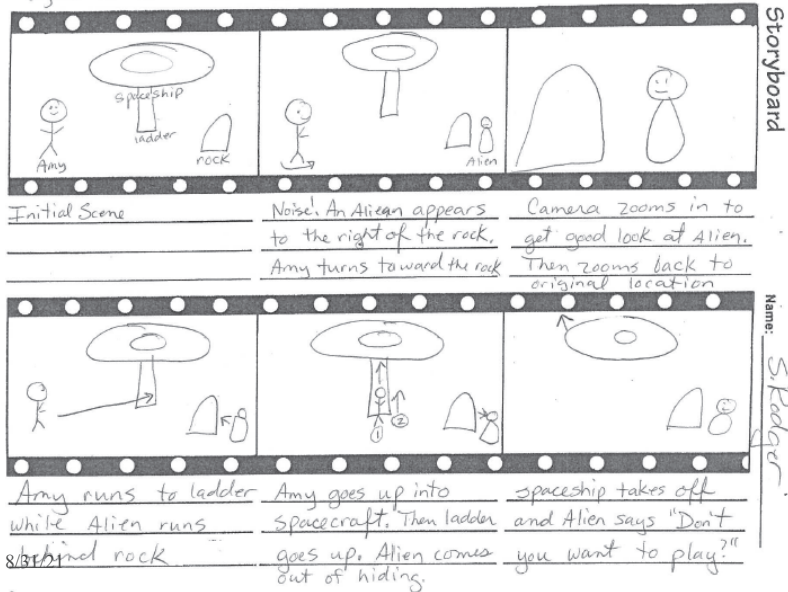 Storyboard
Name: S. Rodger
spaceship
ladder
Amy
rock
Alien
Initial Scene
Noise! An Aliean appears
to the right of the rock.
Amy turns toward the rock
Camera zooms in to
get good look at Alien.
Then zooms back to
original location
① ②
Amy runs to ladder
while Alien runs
behind rock
Amy goes up into
spacecraft. Then ladder
goes up. Alien comes
out of hiding.
spaceship takes off
and Alien says "Don't
you want to play?"
8/31/21